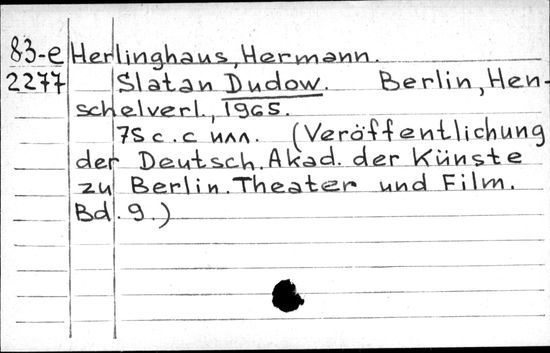 83-e Herlinghaus, Hermann.
2277 Slatan Dudow. Berlin, Hen-
schelverl., 1965.
75 с. с илл. (Veröffentlichung
der Deutsch. Akad. der Künste
zu Berlin. Theater und Film.
Bd. 9.)